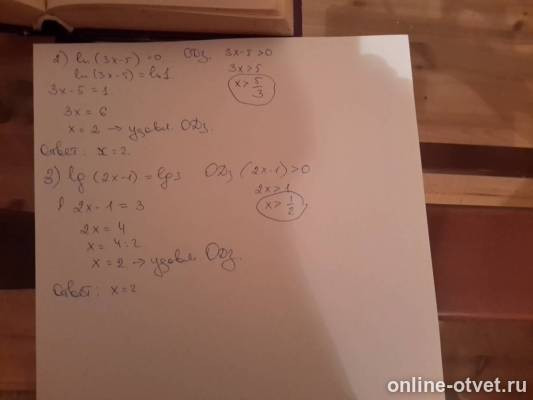 2) ln (3x-5) = 0 ОДЗ 3x-5 > 0
ln (3x-5) = ln 1 3x > 5
3x - 5 = 1 x > 5/3
3x = 6
x = 2 → удовл. ОДЗ.
Ответ: x = 2.
3) lg (2x-1) = lg 3 ОДЗ (2x-1) > 0
2x > 1
2x - 1 = 3 x > 1/2
2x = 4
x = 4:2
x = 2 → удовл. ОДЗ.
Ответ: x = 2
online-otvet.ru